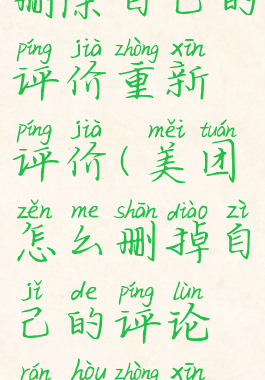 删除自己的
píng jià zhòng xīn
评价重新
píng jià měi tuán
评价(美团
zěn me shān diào zì
怎么删掉自
jǐ de píng lùn
己的评论
rán hòu zhòng xīn